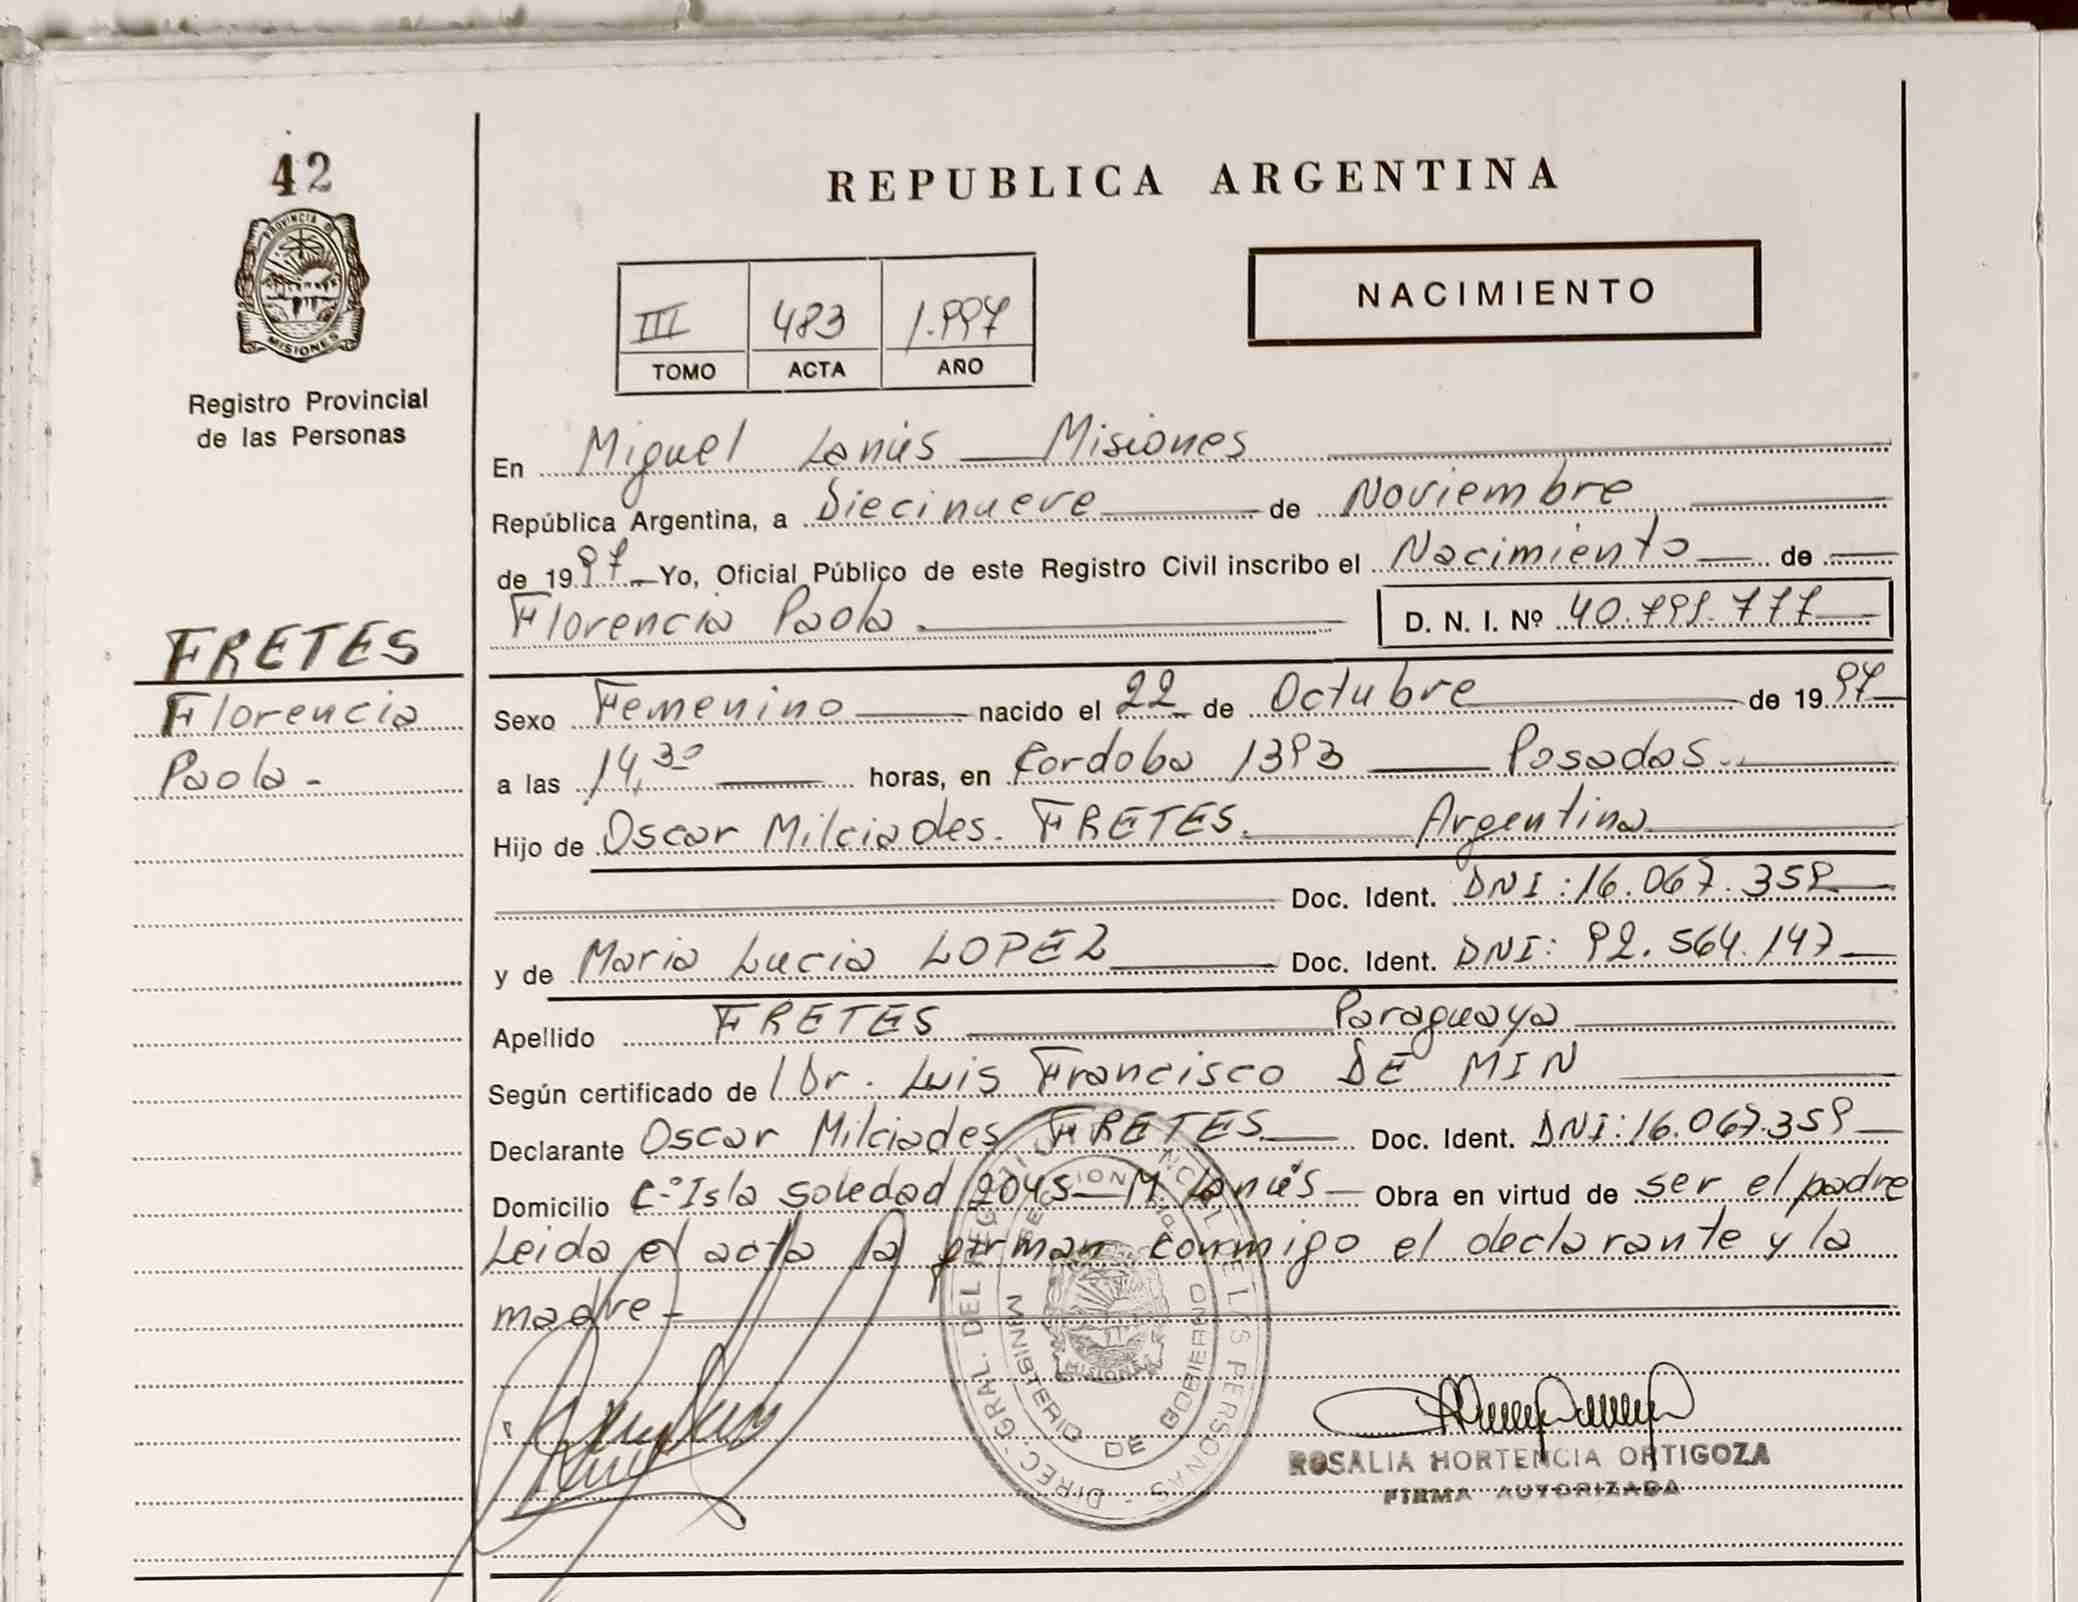 42
PROVINCIA DE
MISIONES
Registro Provincial
de las Personas
REPUBLICA ARGENTINA
III 483 1.997
TOMO ACTA AÑO
NACIMIENTO
En Miguel Lanús — Misiones
República Argentina, a Diecinueve de Noviembre
de 1997 Yo, Oficial Público de este Registro Civil inscribo el Nacimiento de
Florencia Paola. D. N. I. Nº 40.791.777
FRETES
Florencia
Paola -
Sexo Femenino nacido el 22 de Octubre de 1997
a las 14,30 horas, en Cordoba 1393 — Posadas.
Hijo de Oscar Milciades. FRETES. Argentina
Doc. Ident. DNI: 16.067.359
y de Maria Lucia LOPEZ Doc. Ident. DNI: 92.564.147
Apellido FRETES Paraguaya
Según certificado de Dr. Luis Francisco DE MIN
Declarante Oscar Milciades FRETES Doc. Ident. DNI: 16.067.359
Domicilio C.º Isla Soledad 2045 — M. Lanús — Obra en virtud de ser el padre
Leida el acta la firman conmigo el declarante y la
madre -
DIREC. GRAL. DEL DE LAS PERSONAS -
MINISTERIO DE GOBIERNO
MISIONES
ROSALIA HORTENCIA ORTIGOZA
FIRMA AUTORIZADA